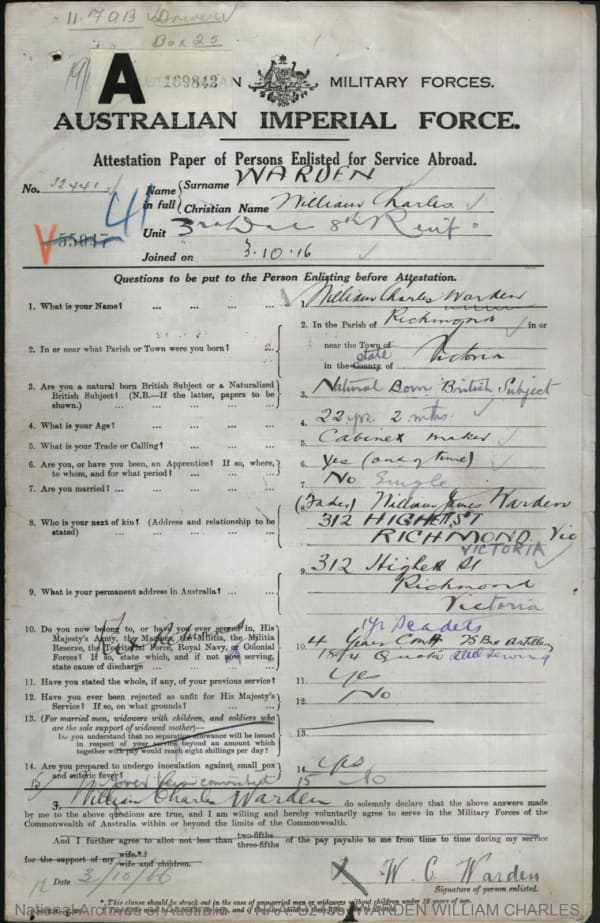 Box 25
A
169842
MILITARY FORCES.
AUSTRALIAN IMPERIAL FORCE.
Attestation Paper of Persons Enlisted for Service Abroad.
No. 32441
Name in full
Surname WARDEN
Christian Name William Charles
41
V 55047
Unit 3rd Div 8th Reinf.
Joined on 3.10.16
Questions to be put to the Person Enlisting before Attestation.
1. What is your Name? ... ... ... ...
1. William Charles Warden
2. In or near what Parish or Town were you born? 2.
2. In the Parish of Richmond in or
near the Town of
in the County of state Victoria
3. Are you a natural born British Subject or a Naturalized
British Subject? (N.B.—If the latter, papers to be
shown.) ... ... ... ... ...
3. Natural Born British Subject
4. What is your Age? ... ... ... ...
4. 22 yr. 2 mths
5. What is your Trade or Calling? ... ... ...
5. Cabinet maker
6. Are you, or have you been, an Apprentice? If so, where,
to whom, and for what period? ... ... ...
6. Yes (out of time)
7. Are you married? ... ... ... ... ...
7. No Single
8. Who is your next of kin? (Address and relationship to be
stated) ... ... ... ... ...
8. (Father) William James Warden
312 HIGHETT ST
RICHMOND Vic
VICTORIA
9. What is your permanent address in Australia? ... ...
9. 312 Highett St
Richmond
Victoria
10. Do you now belong to, or have you ever served in, His
Majesty's Army, the Marines, the Militia, the Militia
Reserve, the Territorial Force, Royal Navy, or Colonial
Forces? If so, state which, and if not now serving,
state cause of discharge ... ... ...
1 yr Seadets
10. 4 Years 
18/4 Quota still serving
11. Have you stated the whole, if any, of your previous service?
11. Yes
12. Have you ever been rejected as unfit for His Majesty's
Service? If so, on what grounds? ... ...
12. No
13. (For married men, widowers with children, and soldiers who
are the sole support of widowed mother)—
Do you understand that no separation allowance will be issued
in respect of your service beyond an amount which
together with pay would reach eight shillings per day?
13.
14. Are you prepared to undergo inoculation against small pox
and enteric fever?
14. Yes
15 ever been convicted
15 No
I, William Charles Warden do solemnly declare that the above answers made
by me to the above questions are true, and I am willing and hereby voluntarily agree to serve in the Military Forces of the
Commonwealth of Australia within or beyond the limits of the Commonwealth.
And I further agree to allot not less than two-fifths three-fifths of the pay payable to me from time to time during my service
for the support of my wife.*† wife and children.
Date 3/10/16
X W. C. Warden
Signature of person enlisted.
* This clause should be struck out in the case of unmarried men or widowers without children under 18 years of age.
National Archives of Australia NAA: B2455, WARDEN WILLIAM CHARLES